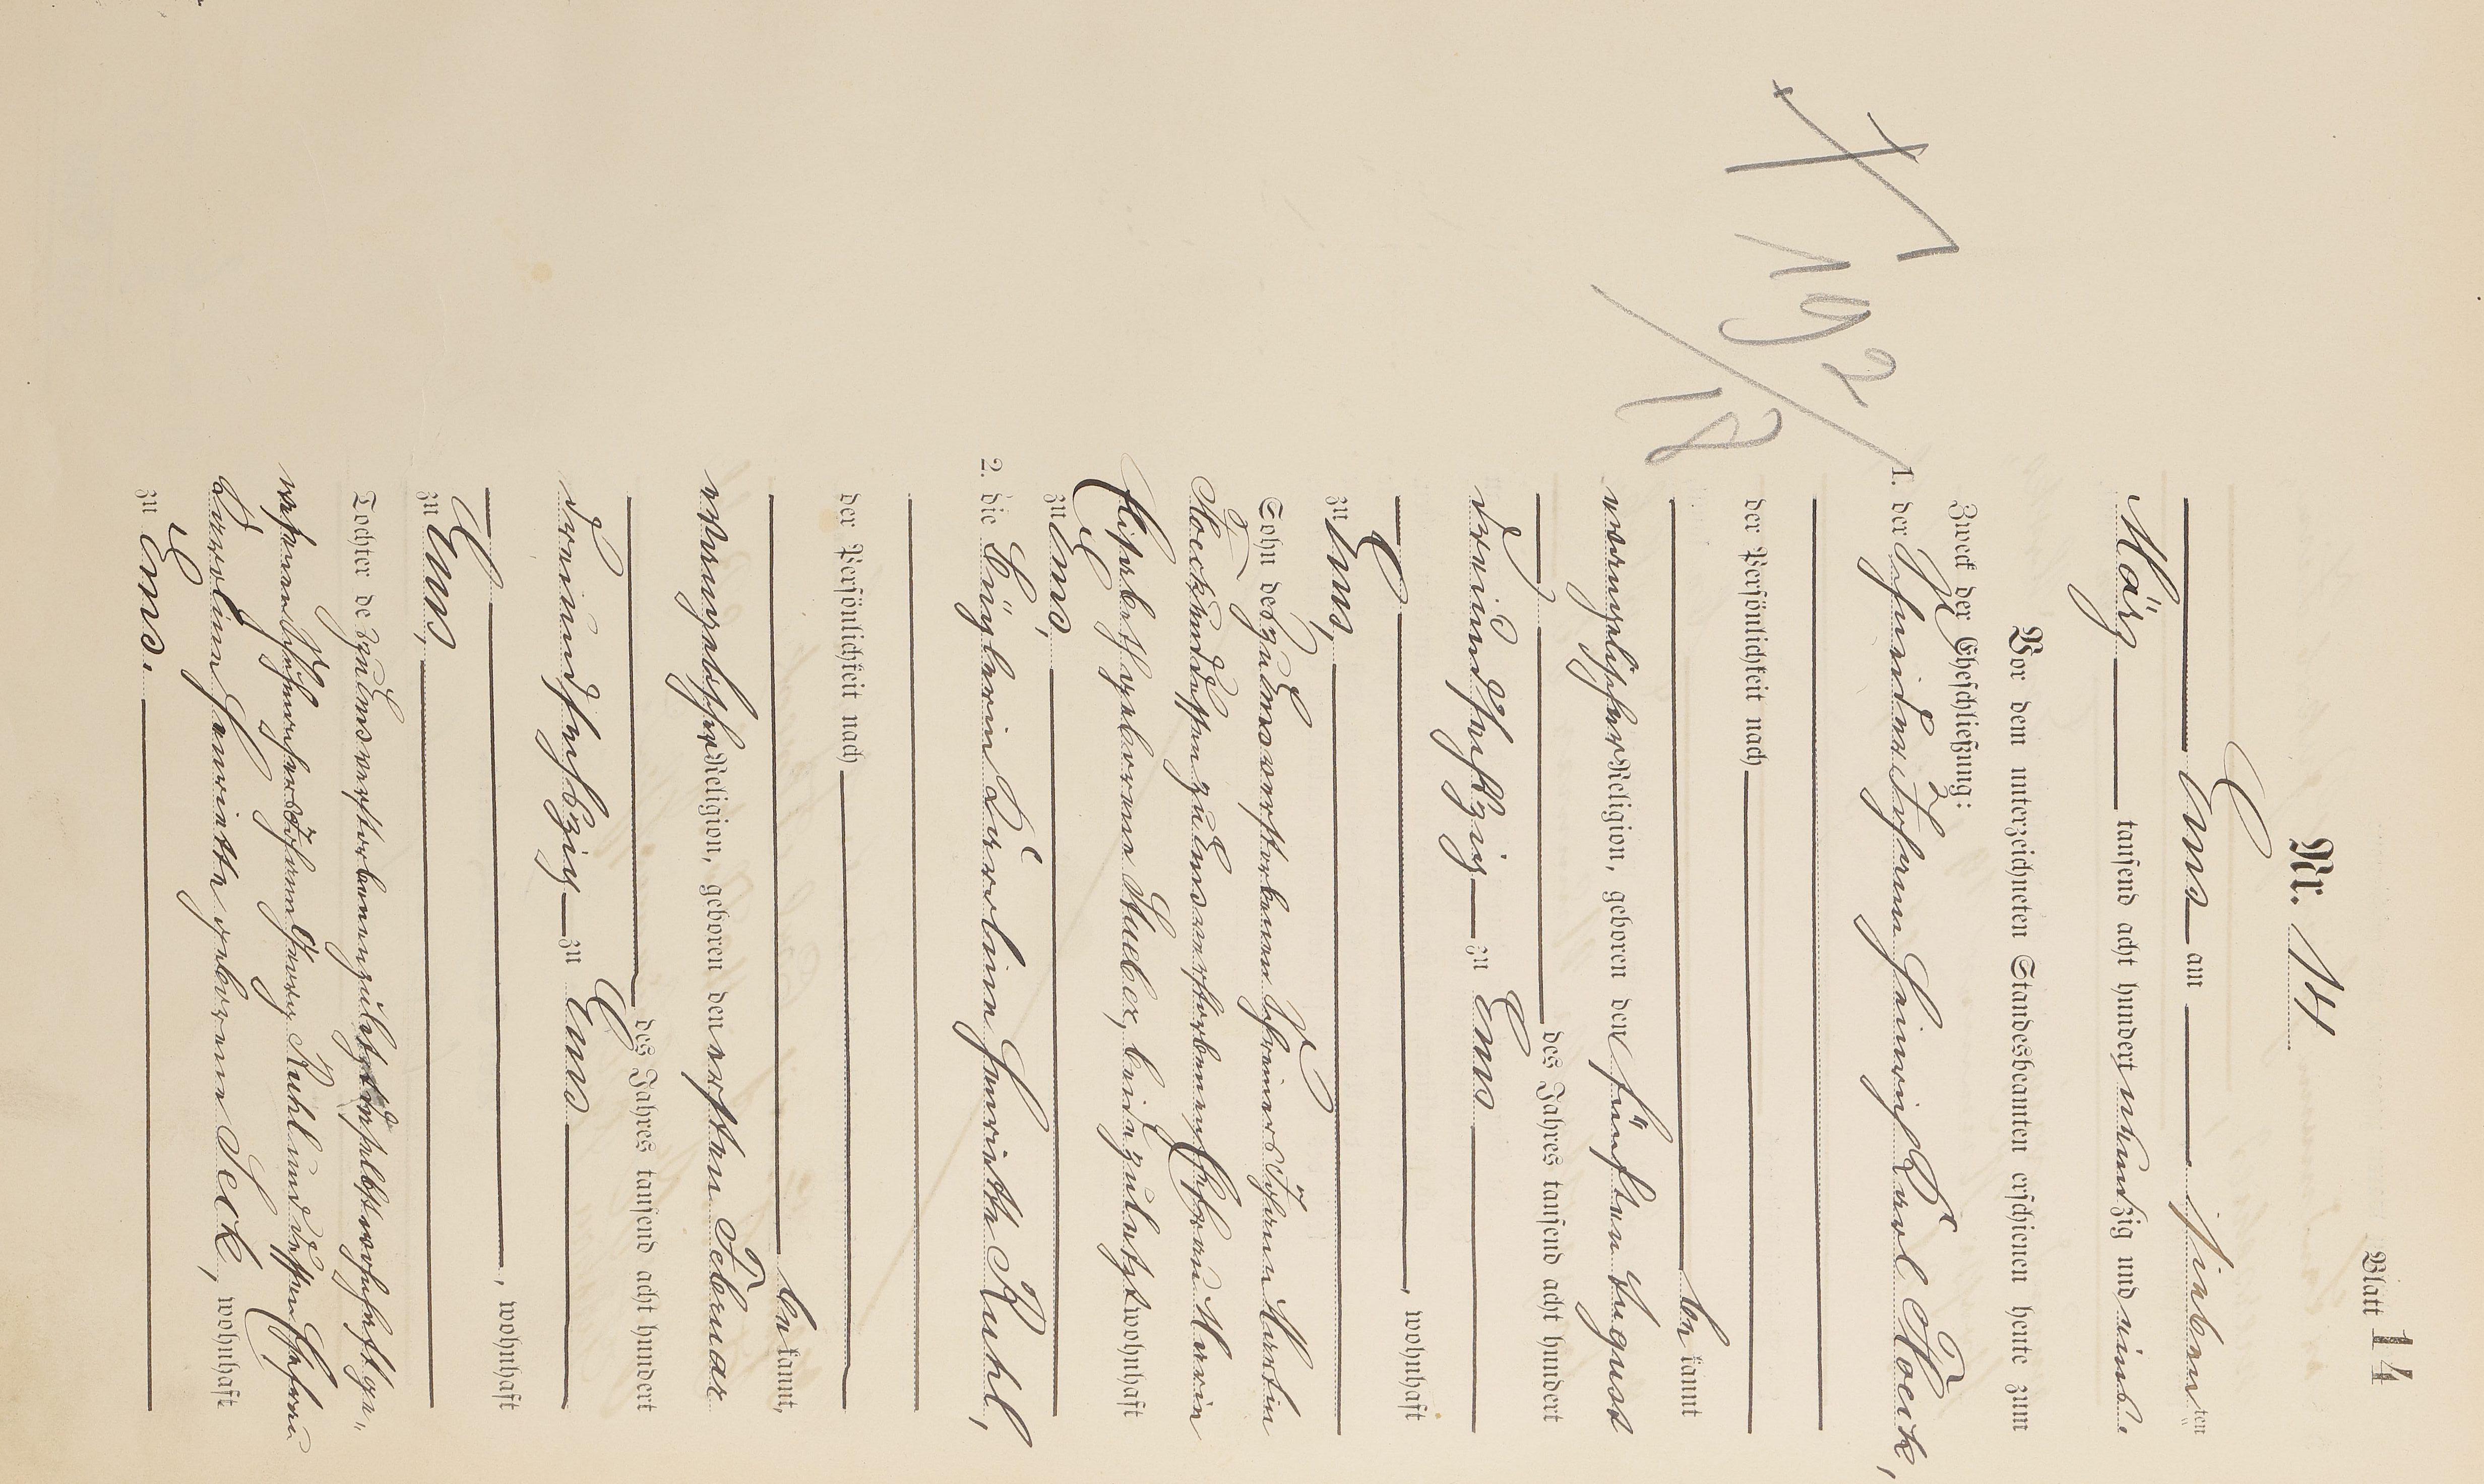 Blatt 14
Nr. 14
Ems am siebenten
März tausend acht hundert neunzig und eins.
Vor dem unterzeichneten Standesbeamten erschienen heute zum
Zweck der Eheschließung:
1. der Schneider Johann Heinrich Karl Hoeck,
der Persönlichkeit nach
bekannt
evangelischer Religion, geboren den fünften August
des Jahres tausend acht hundert
dreiundsechszig zu Ems
, wohnhaft
zu Ems,
Sohn des zu Ems verstorbenen Schreiners Johann Martin
Hoeck und dessen zu Ems verstorbenen Ehefrau Maria
Elisabeth geborene Huebex, beide zuletzt wohnhaft
zu Ems,
2. die Büglerin Karoline Henriette Ruhl,
der Persönlichkeit nach
bekannt,
evangelischer Religion, geboren den ersten Februar
des Jahres tausend acht hundert
dreiundsechszig zu Ems
, wohnhaft
zu Ems,
Tochter de zu Ems verstorbenen zuletzt daselbst wohnhaft ge-
wesenen Johann Georg Ruhl und dessen Ehefrau
Karoline Henriette geborene Seck, wohnhaft
zu Ems.